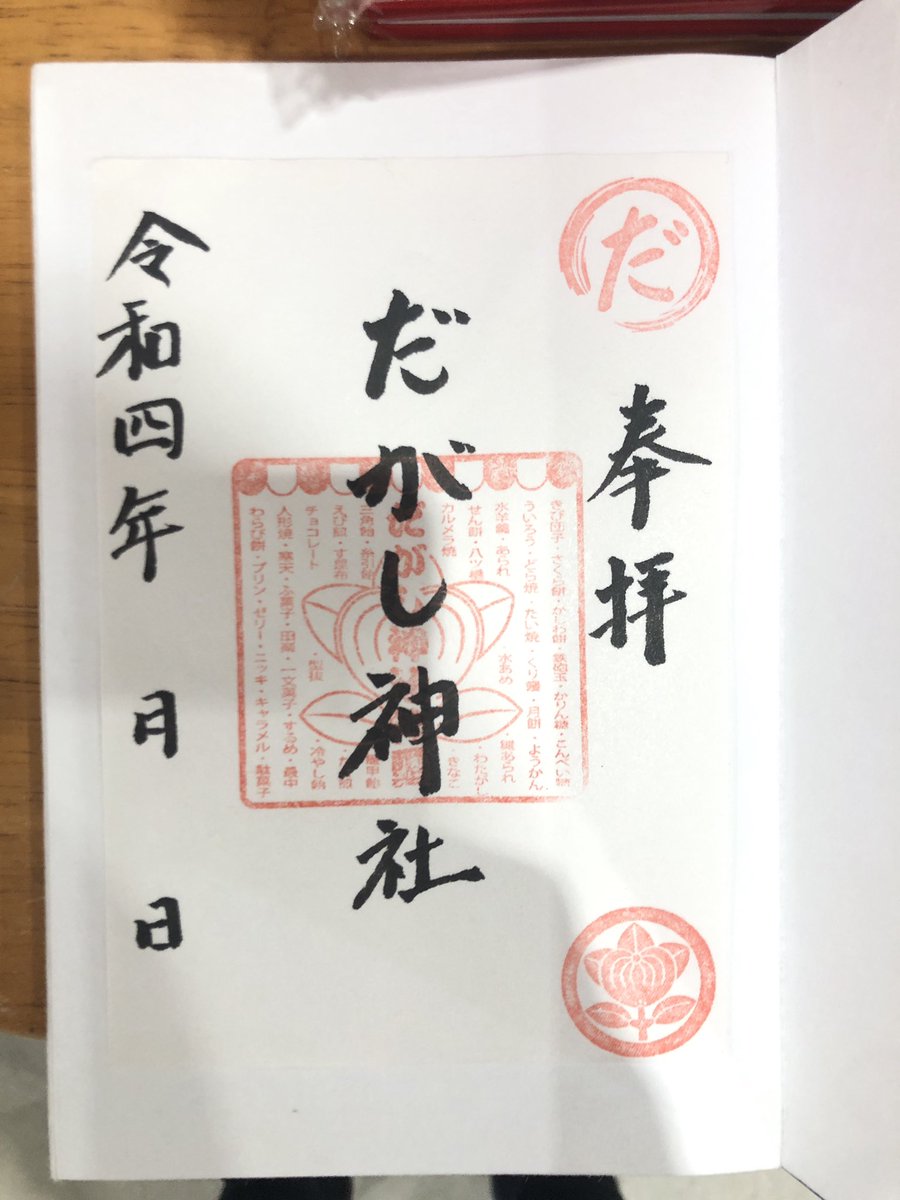 だ
奉拝
だがし神社
きび団子・さくら餅・かしわ餅・鉄砲玉・かりん糖・こんぺい糖
ういろう・どら焼・たい焼・くり饅・月餅・ようかん
水羊羹・あられ・水あめ・雛あられ
せん餅・八ツ橋・わたがし
カルメラ焼・きなこ
三角飴・糸引飴
す昆布
チョコレート・型抜・冷やし飴
人形焼・寒天・ふ菓子・一文菓子・するめ・最中
わらび餅・プリン・ゼリー・ニッキ・キャラメル・駄菓子
令和四年 月 日